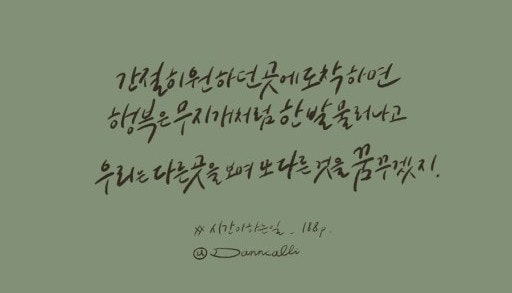 간절히 원하던 곳에 도착하면
행복은 무지개처럼 한 발 물러나고
우리는 다른 곳을 보며 또 다른 것을 꿈꾸겠지.
# 시간이하는일 _ 188p.
@ Danncalli